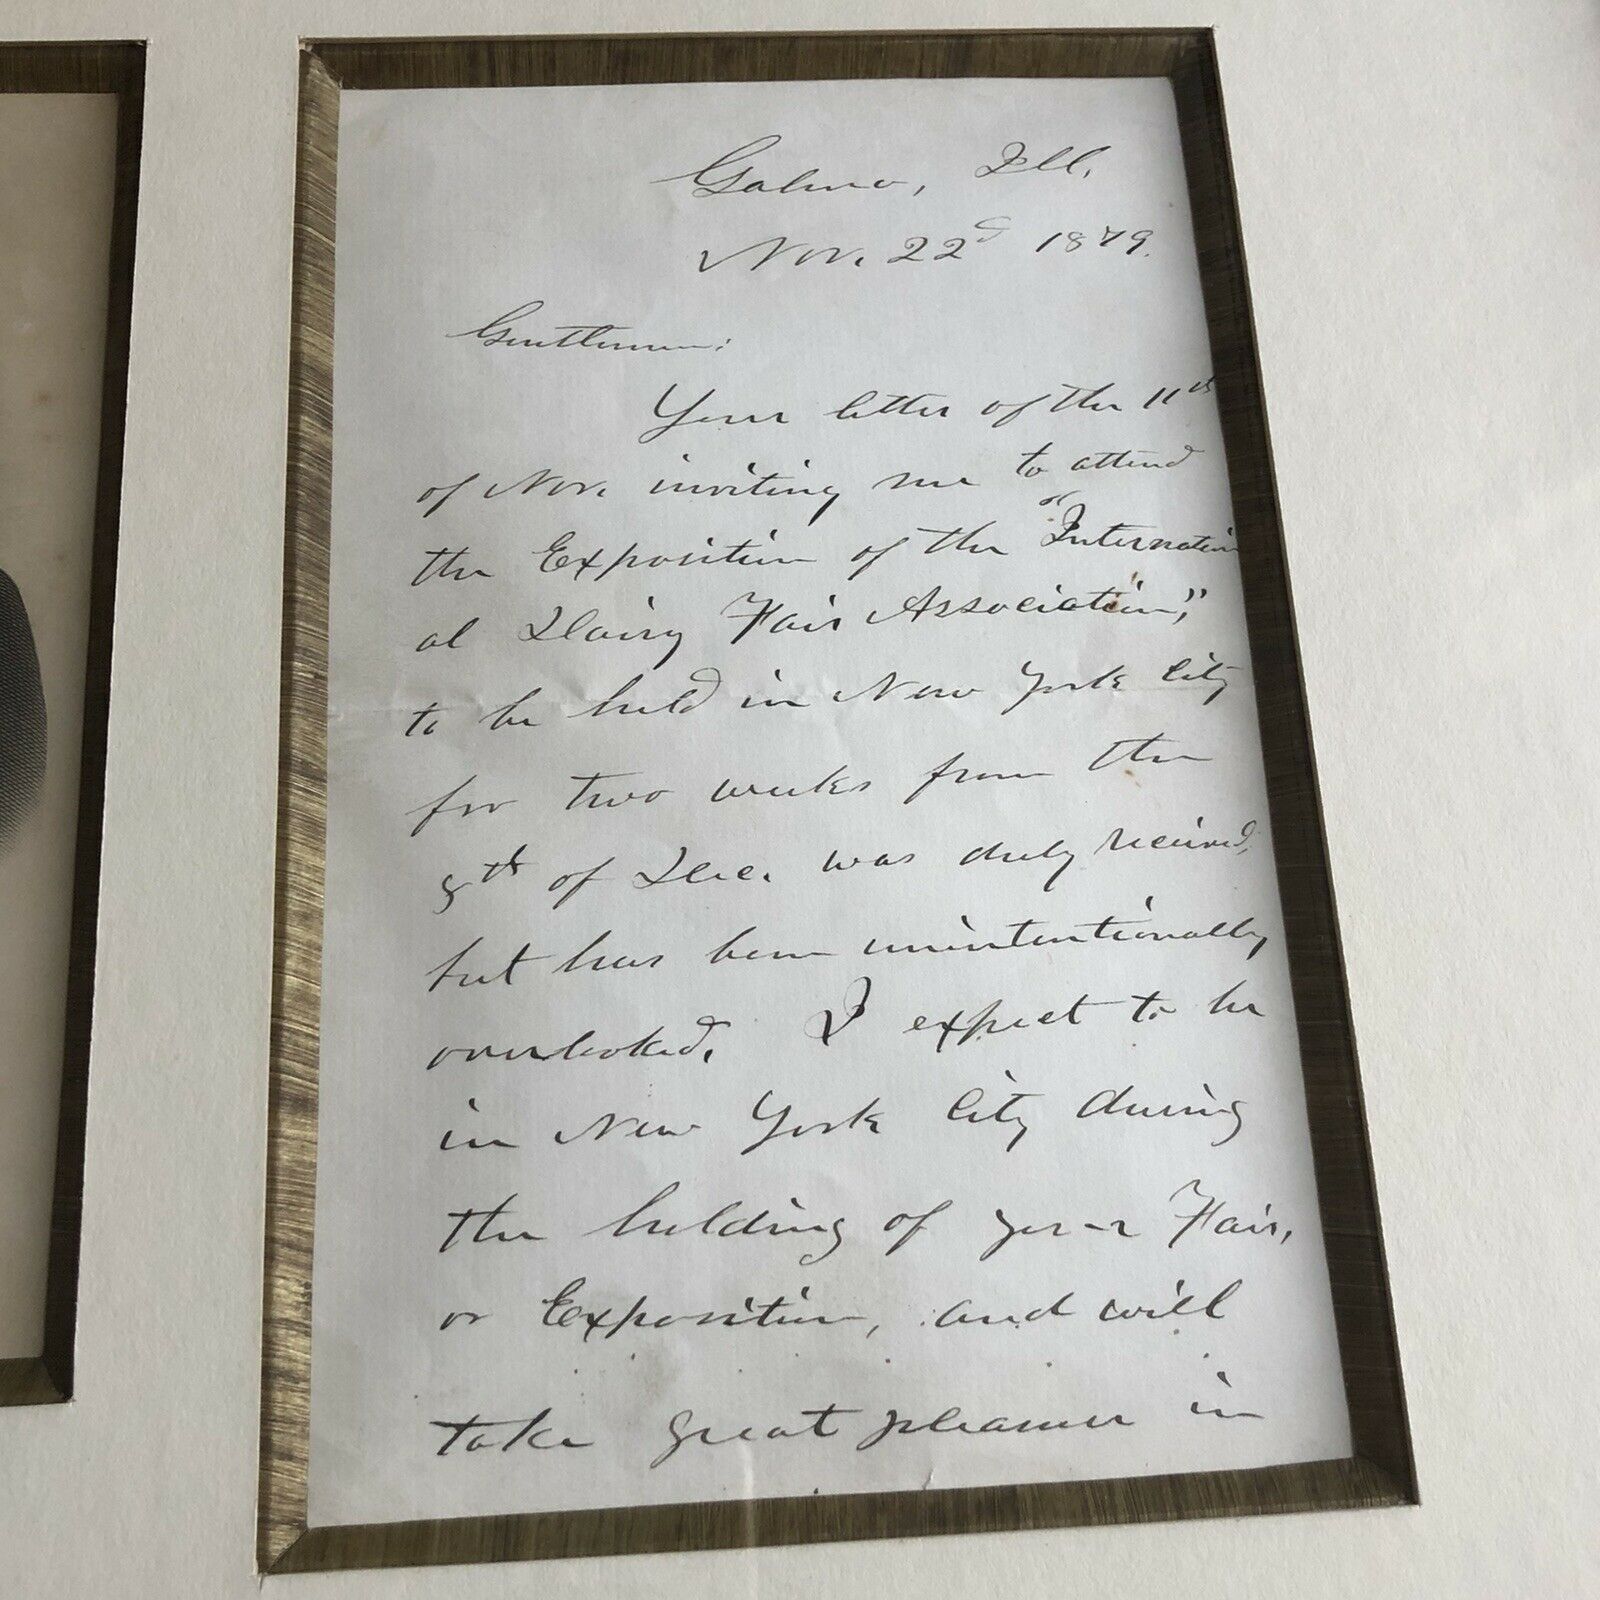 Galena, Ill,
Nov. 22d 1879.
Gentlemen:
Your letter of the 11th
of Nov. inviting me to attend
the Exposition of the "Internation
al Dairy Fair Association,"
to be held in New York City
for two weeks from the
8th of Dec. was duly received,
but has been unintentionally
overlooked. I expect to be
in New York City during
the holding of your Fair,
or Exposition, and will
take great pleasure in